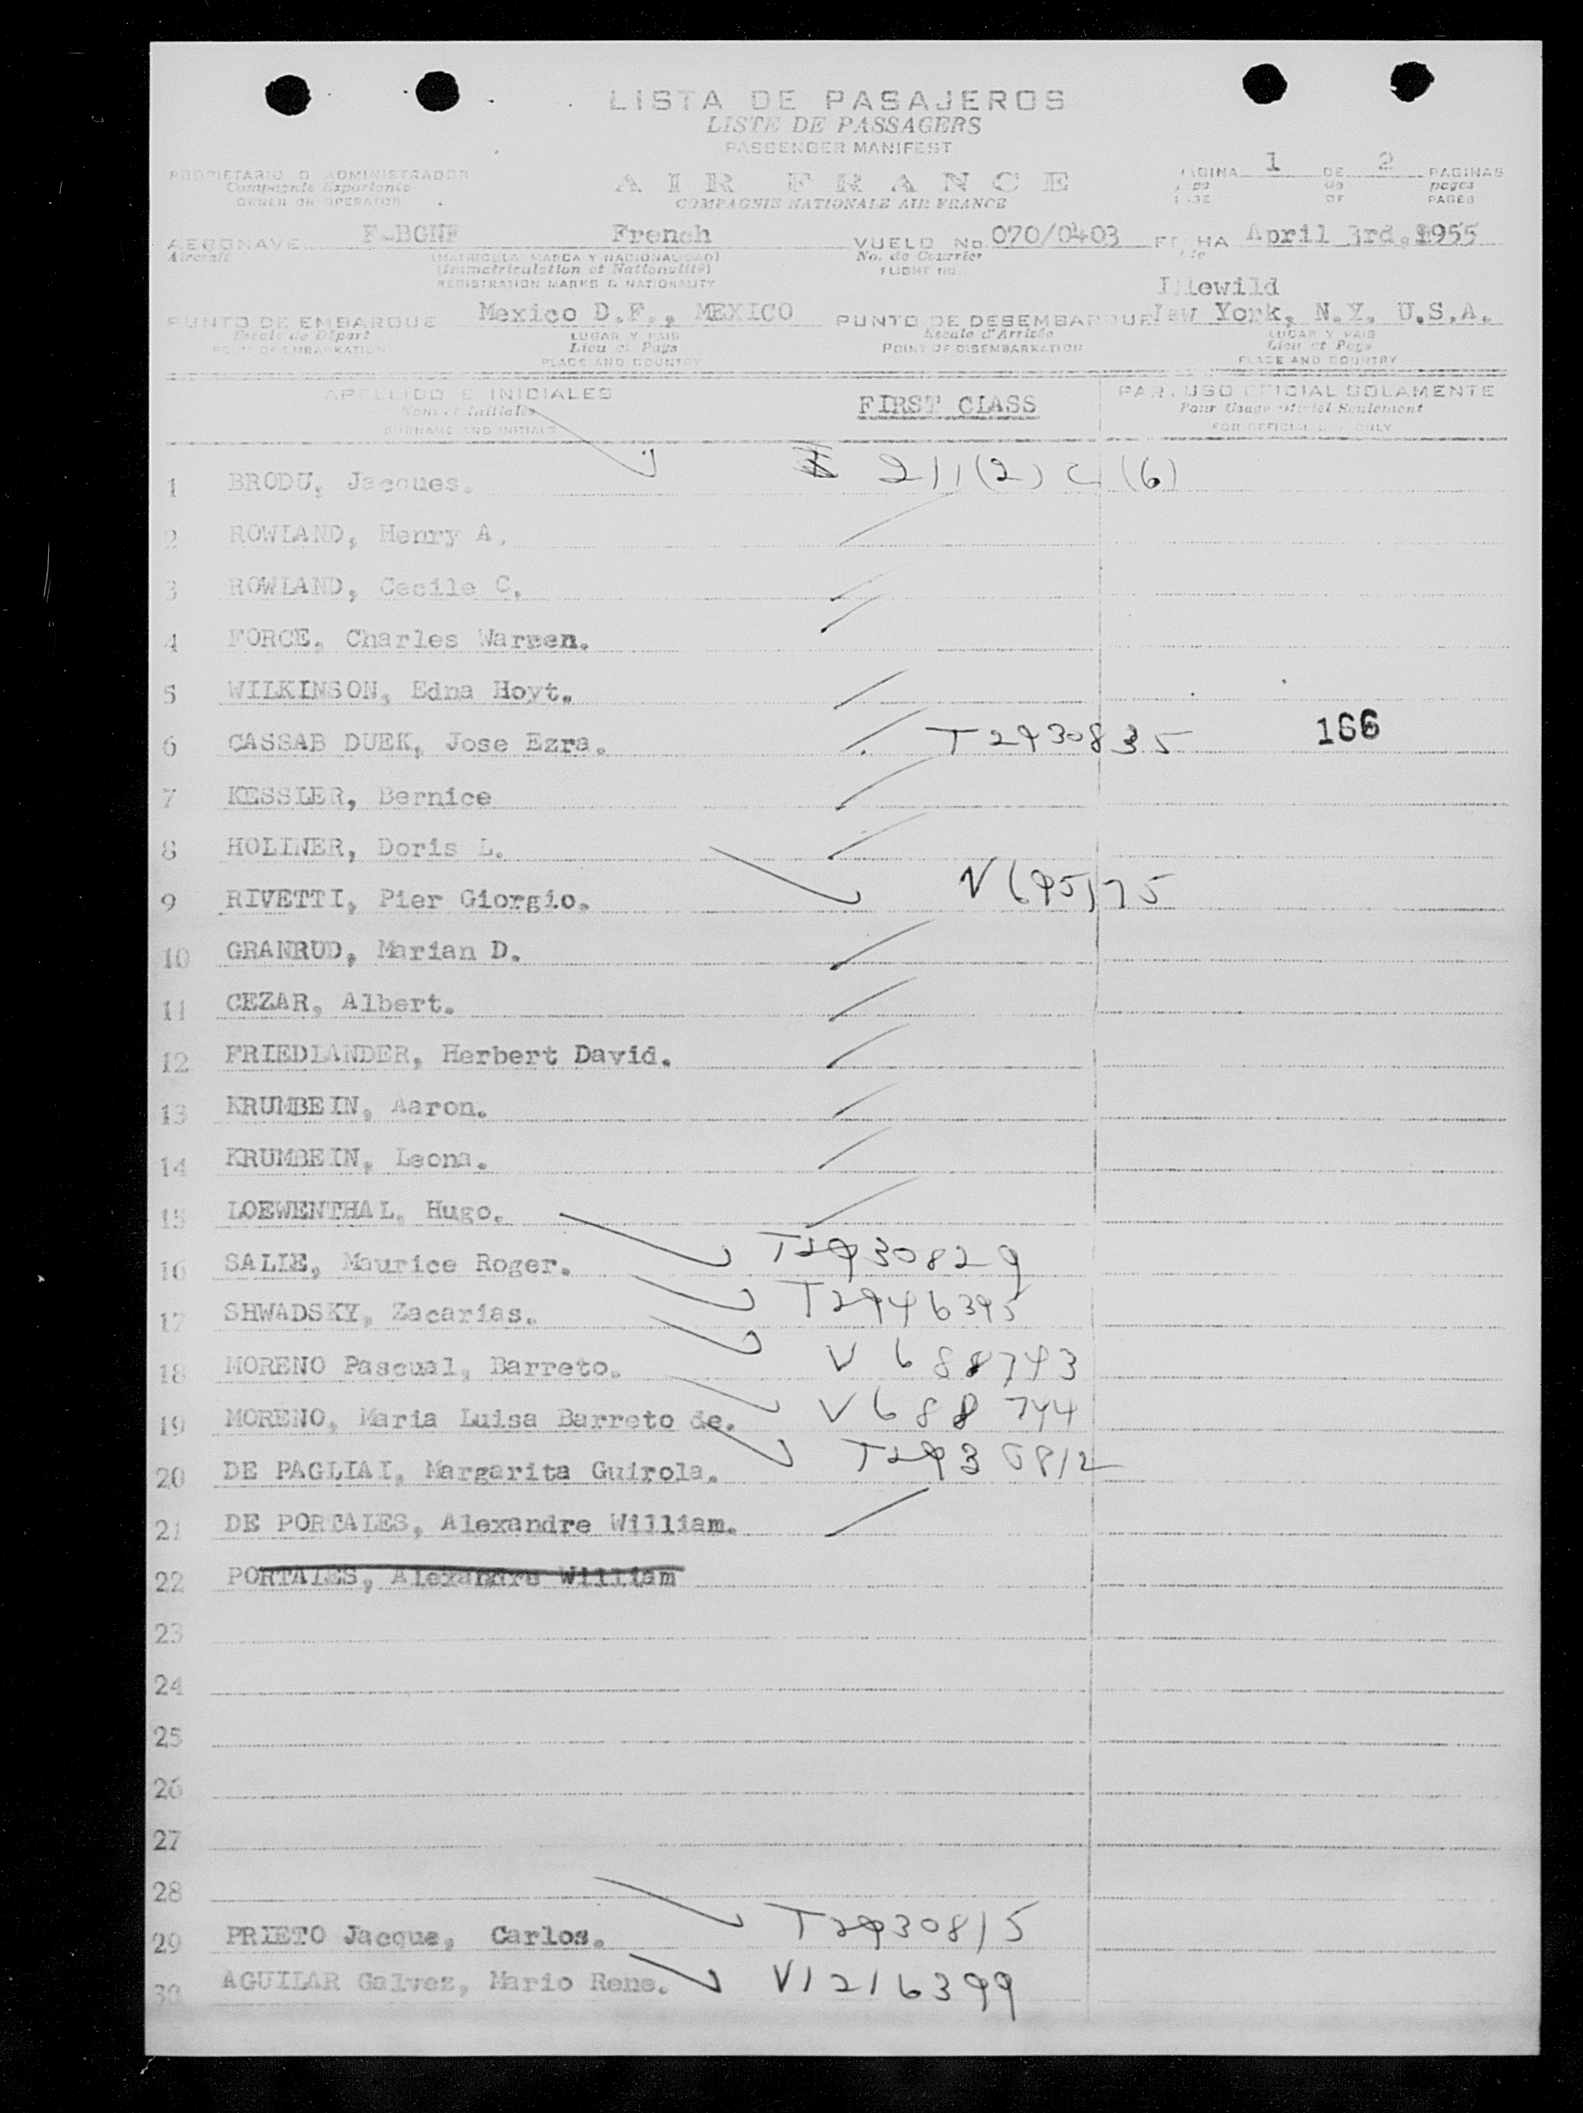 LISTA DE PASAJEROS
LISTE DE PASSAGERS
PASSENGER MANIFEST
PROPIETARIO O ADMINISTRADOR
Compagnie Exportante
OWNER OR OPERATOR
AIR FRANCE
COMPAGNIE NATIONALE AIR FRANCE
PAGINA 1 DE 2 PAGINAS
pages
OF PAGES
AERONAVE F-BGNF French VUELO No. 070/0403 FECHA April 3rd, 1955
Aircraft (MATRICULA MARCA Y NACIONALIDAD) No. de Courrier
(Immatriculation et Nationalité) FLIGHT no.
REGISTRATION MARKS & NATIONALITY
Idlewild
PUNTO DE EMBARQUE Mexico D.F., MEXICO PUNTO DE DESEMBARQUE New York, N.Y. U.S.A.
Escale de Départ LUGAR Y PAIS Escale d'Arrivée LUGAR Y PAIS
POINT OF EMBARKATION Lieu et Pays POINT OF DISEMBARKATION Lieu et Pays
PLACE AND COUNTRY PLACE AND COUNTRY
APELLIDO E INICIALES FIRST CLASS PARA USO OFICIAL SOLAMENTE
Nom et Initiales Pour Usage Officiel Seulement
SURNAME AND INITIALS FOR OFFICIAL USE ONLY
1 BRODU, Jacques. 211(2) C (6)
2 ROWLAND, Henry A.
3 ROWLAND, Cecile C.
4 FORCE, Charles Warren.
5 WILKINSON, Edna Hoyt.
6 CASSAB DUEK, Jose Ezra. T2930835 166
7 KESSLER, Bernice
8 HOLLNER, Doris L.
9 RIVETTI, Pier Giorgio. V695175
10 GRANRUD, Marian D.
11 CEZAR, Albert.
12 FRIEDLANDER, Herbert David.
13 KRUMBEIN, Aaron.
14 KRUMBEIN, Leona.
15 LOEWENTHAL, Hugo.
16 SALLE, Maurice Roger. T2930829
17 SHWADSKY, Zacarias. T2946395
18 MORENO Pascual, Barreto. V 688743
19 MORENO, Maria Luisa Barreto de. V688744
20 DE PAGLIAI, Margarita Guirola. T2930812
21 DE PORTALES, Alexandre William.
22 PORTALES, Alexandre William
23
24
25
26
27
28
29 PRIETO Jacque, Carlos. T2930815
30 AGUILAR Galvez, Mario Rene. V1216399